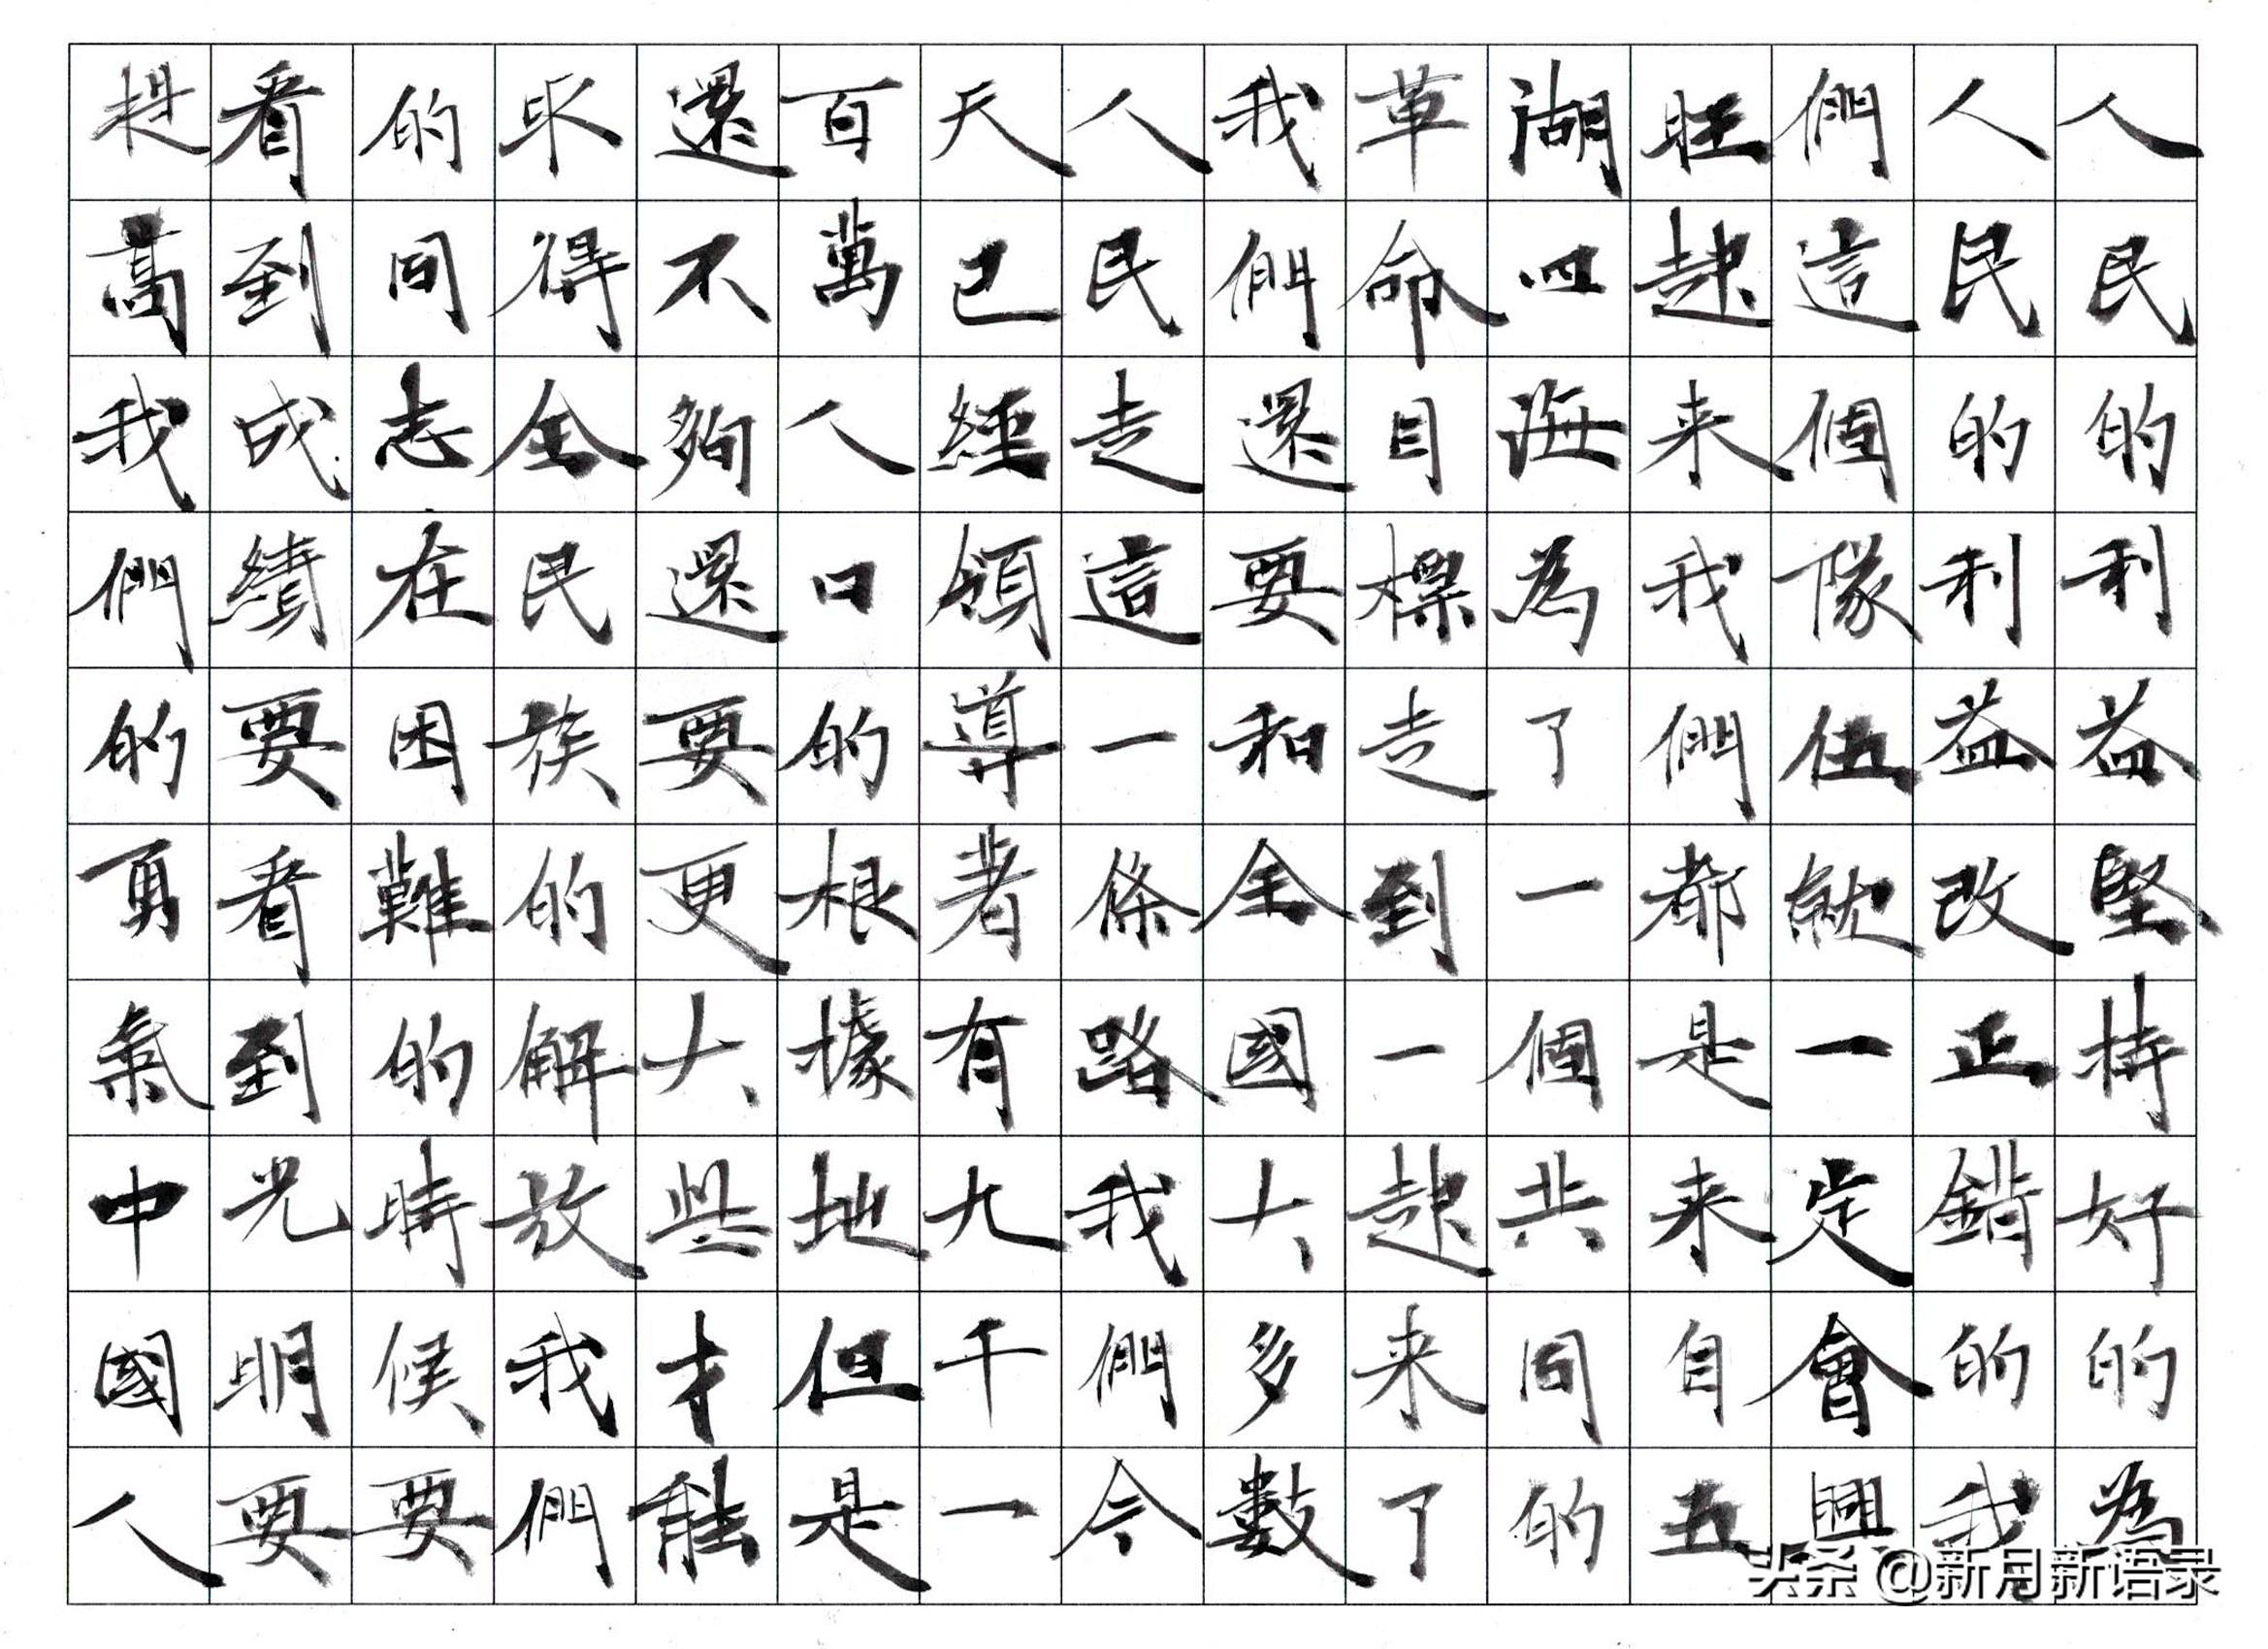 人民的利益堅持好的為
人民的利益改正錯的我
們這個隊伍就一定會興
旺起来我們都是来自五
湖四海為了一個共同的
革命目標走到一起来了
我們還要和全國大多數
人民走這一條路我們今
天已經領導着有九千一
百萬人口的根據地但是
還不夠還要更大些才能
取得全民族的解放我們
的同志在困難的時候要
看到成績要看到光明要
提高我們的勇氣中國人
头条 @新月新语录